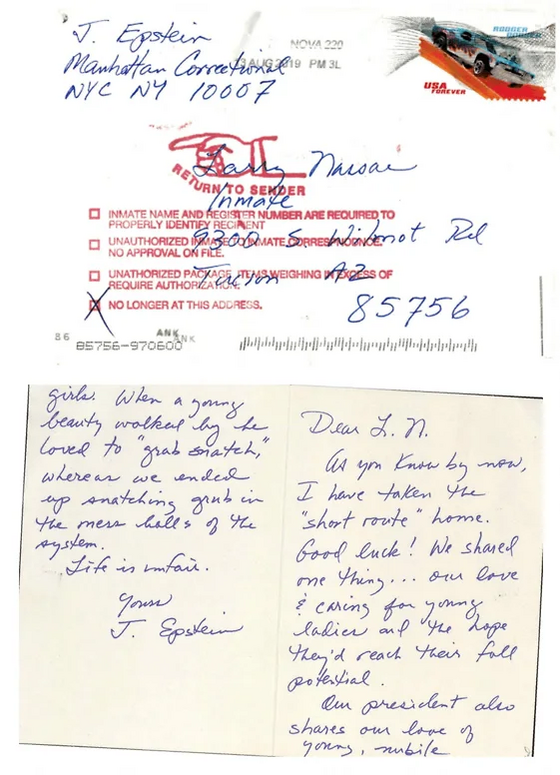 J. Epstein
Manhattan Correctional
NYC NY 10007
NOVA 220
13 AUG 2019 PM 3L
USA
FOREVER
Larry Nassar
RETURN TO SENDER
Inmate
9300 S. Wilmot Rd
Tucson AZ
85756
INMATE NAME AND REGISTER NUMBER ARE REQUIRED TO
PROPERLY IDENTIFY RECIPIENT
UNAUTHORIZED INMATE TO INMATE CORRESPONDENCE.
NO APPROVAL ON FILE.
UNATHORIZED PACKAGE, ITEMS WEIGHING IN EXCESS OF
REQUIRE AUTHORIZATION.
NO LONGER AT THIS ADDRESS.
86
ANK
ANK
85756-970600
Dear L. N.
As you know by now,
I have taken the
"short route" home.
Good luck! We shared
one thing... our love
& caring for young
ladies and the hope
they'd reach their full
potential.
Our president also
shares our love of
young, nubile
girls. When a young
beauty walked by he
loved to "grab snatch,"
whereas we ended
up snatching grub in
the mess halls of the
system.
Life is unfair.
Yours
J. Epstein